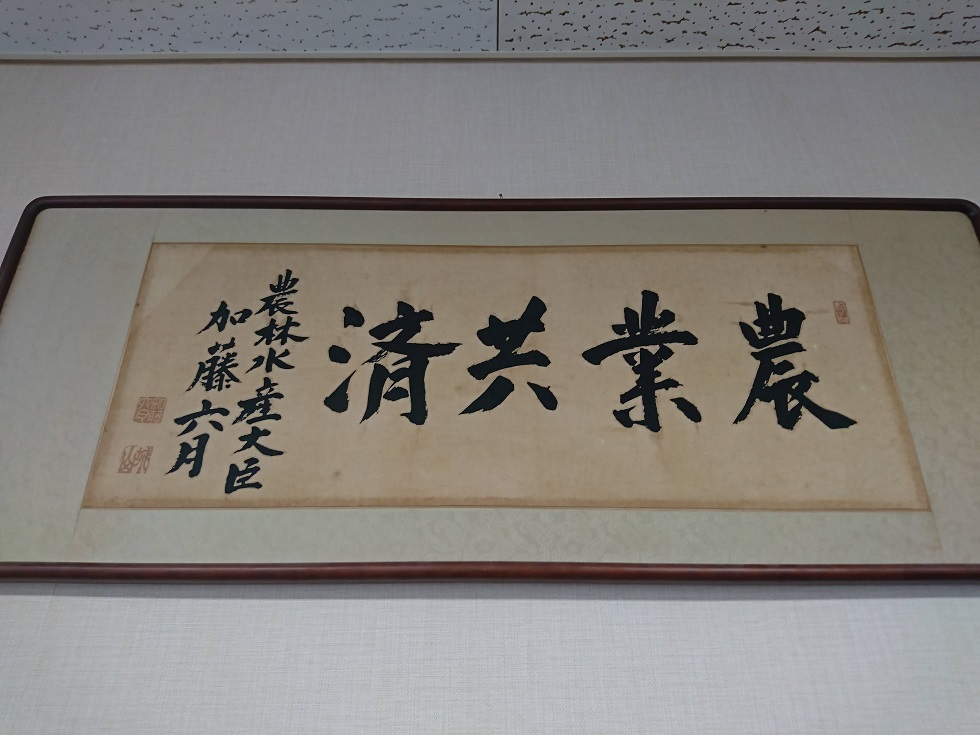 農業共済
農林水産大臣
加藤六月